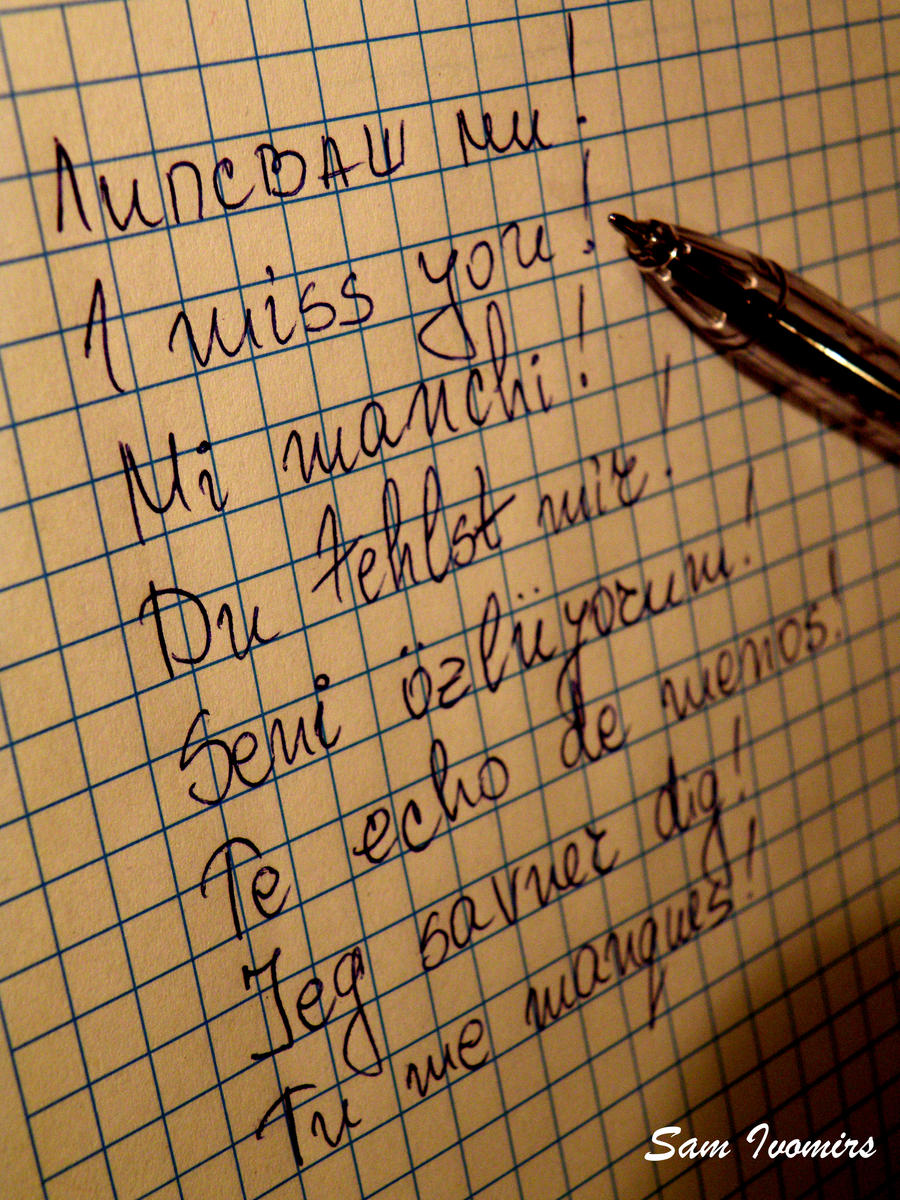 Липсваш ми!
I miss you!
Mi manchi!
Du fehlst mir!
Seni özlüyorum!
Te echo de menos!
Jeg savner dig!
Tu me manques!
Sam Ivomirs